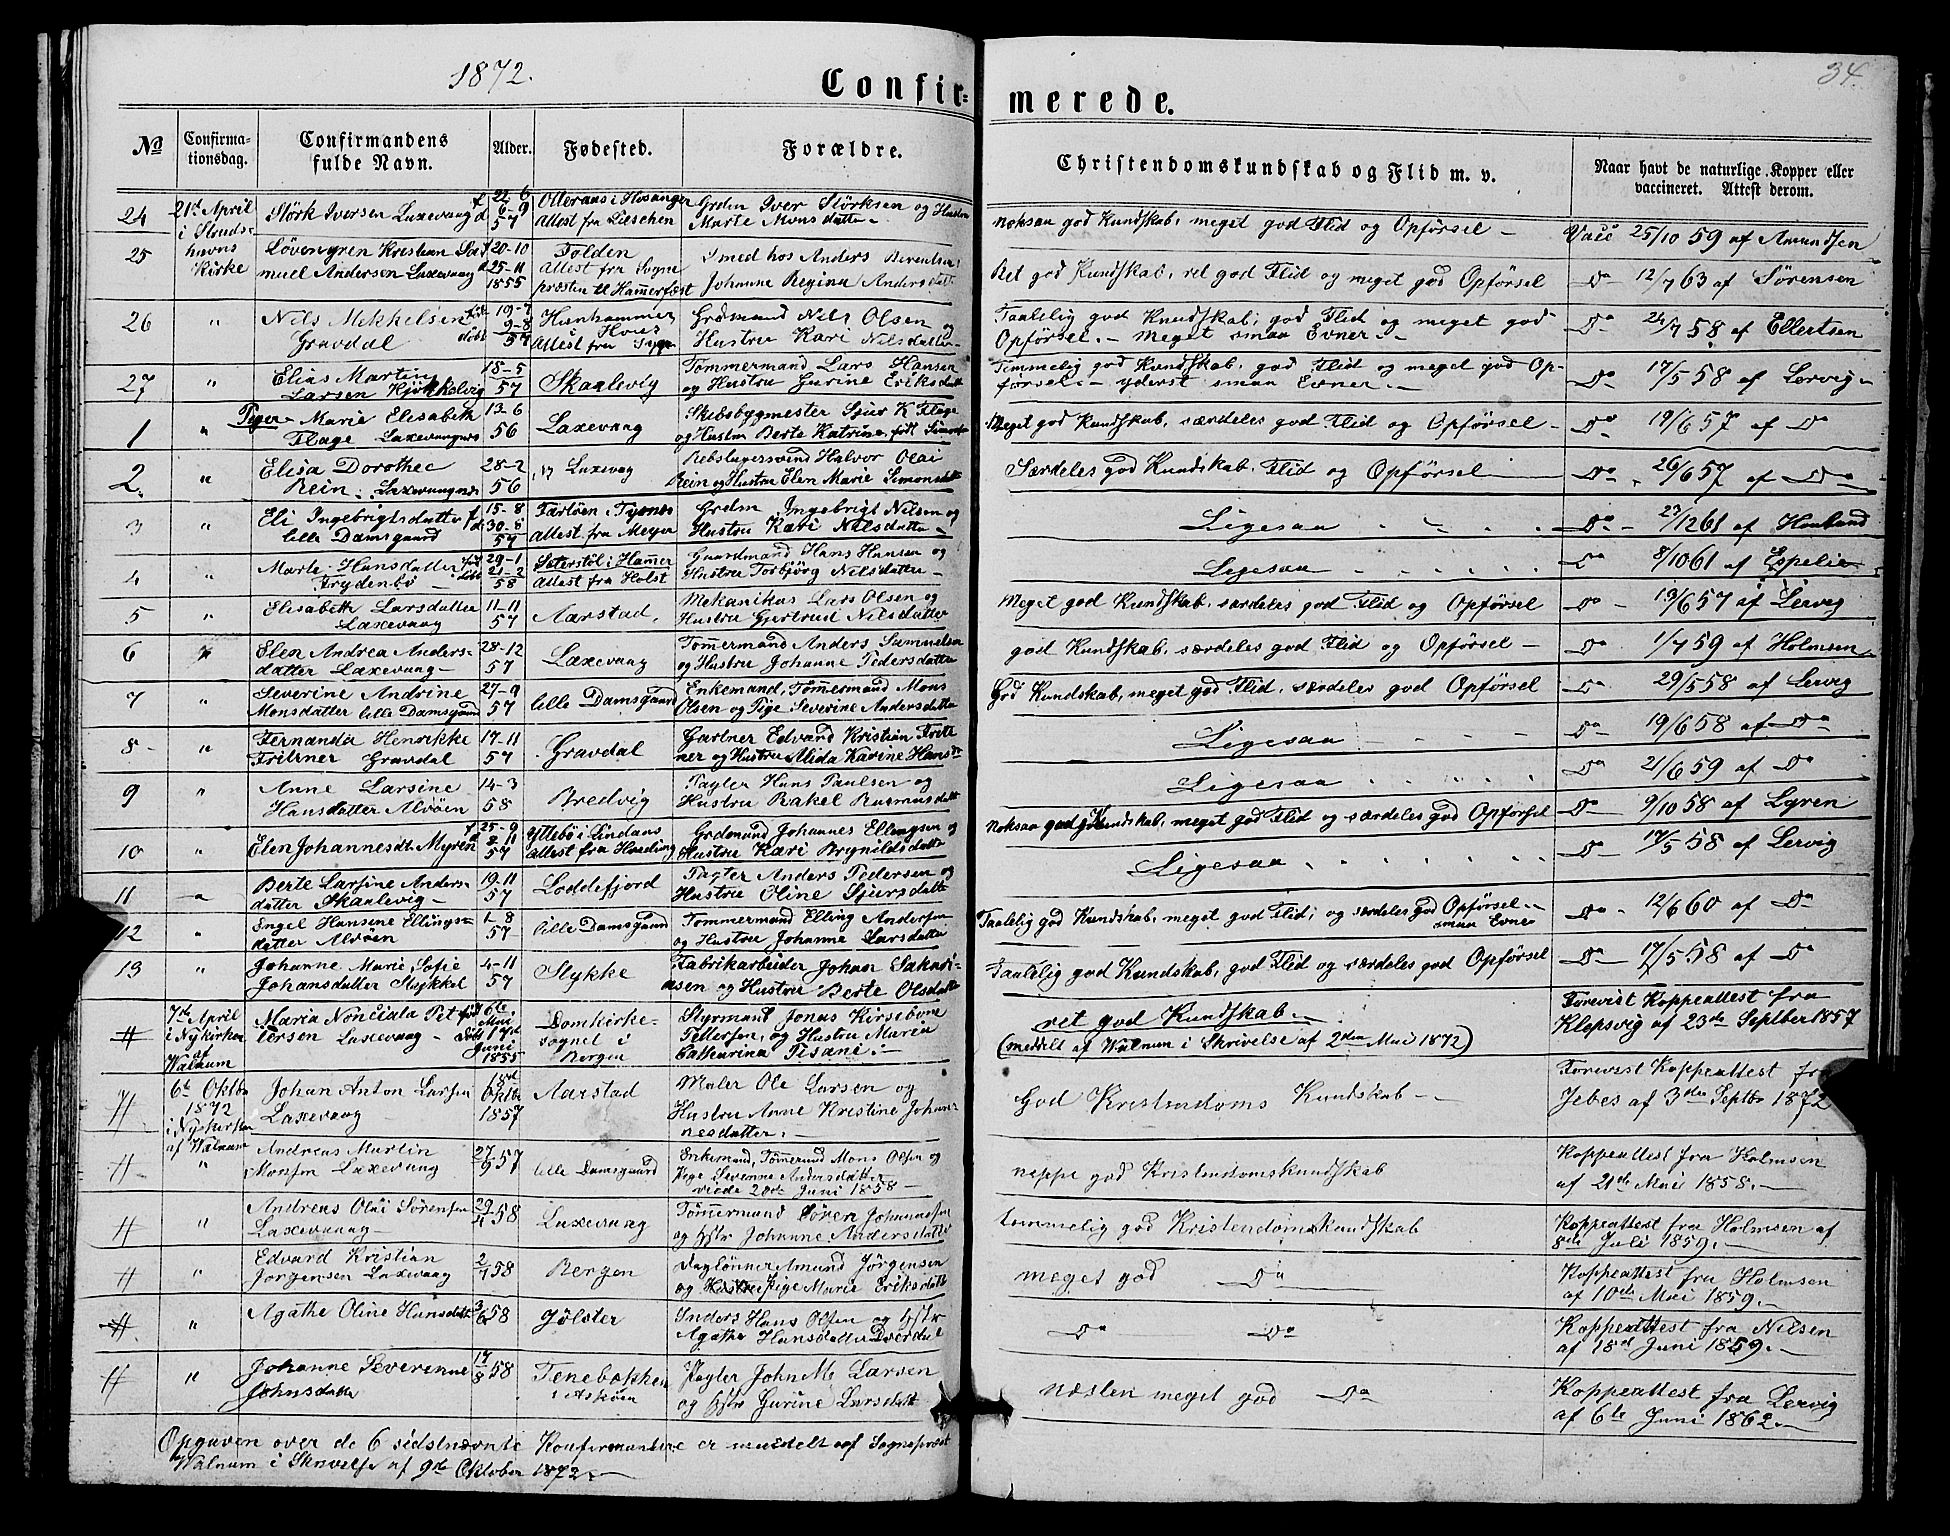 1872.
34.
Confir=
merede.
No
Confirmationsdag.
Confirmandens fulde Navn.
Alder.
Fødested.
Forældre.
Christendomskundskab og Flid m. v.
Naar havt de naturlige Kopper eller vaccineret. Attest derom.
24 21de April i Struds= havns Kirke Störk Iversen Laxevaag f 22 6 d 6-9 57 i Hosanger Attest fra Grdm Iver Störksen og Hustru Marte Monsdatter -
noksaa god Kundskab, meget god Flid og Opförsel - Vacc 25/10 59 af Amundsen
25 Lövengren Kristian Sa= muel Andersen Laxevaag f 20-10 d 25-11 1855 Folden Attest fra Sogne præsten til Hammerfest Smed hos Anders Berentsen, Johanne Regina Andersdatter
Ret god Kundskab, ret god Flid og meget god Opförsel Do 12/7 63 af Sörensen
26 " Nils Mikkelsen Gravdal föd 19-7 döbt 9-8 57 Attest fra Grdmand Nils Olsen og Hustru Kari Nilsdatter -
Taalelig god Kundskab, god Flid og meget god Opförsel. - Meget smaa Evner. - Do 24/7 58 af Ellertsen
27 " Elias Martin Larsen Kjökkelvig 18-5 57 Skaalevig Tömmermand Lars Hansen og Hustru Gurine Eriksdatter
Temmelig god Kundskab, god Flid og meget god Op= försel. - yderst smaa Evner. - Do 17/5 58 af Lervig -
Piger
1 " Marie Elisabeth Flage Laxevaagnes 13-6 56 Laxevaag Skibsbygmester Sjur K Flage og Hustru Berte Katrine, født
Meget god Kundskab, særdeles god Flid og Opförsel - Do - 19/6 57 af Do
2. " Elisa Dorothee Rein. Laxevaagnes 28-2 56 Laxevaag Rebslagersvend Halvor Olai Rein og Hustru Elen Marie Simonsdatter
Særdeles god Kundskab, Flid og Opförsel Do 26/6 57 af Do
3 " Eli Ingebrigtsdatter lille Damsgaard f 15-8 d 30-6 57 Farlöen i Tysnes Attest fra Meyer Grdm Ingebrigt Nilsen og Hustru Kari Nilsdatter -
Ligesaa Do - 23/12 61 af Houland
4 " Marte Hansdatter Frydenbö föd 29-1 döbt 21-2 58 i Hammer Attest fra Holst Gaardmand Hans Hansen og Hustru Torbjörg Nilsdatter -
Ligesaa Do 8/10 61 af Espelie
5 " Elisabeth Larsdatter Laxevaag 11-11 57 Aarstad. Mekanikus Lars Olsen og Hustru Gjertrud Nilsdatter
Meget god Kundskab, særdeles god Flid og Opförsel Do - 13/6 57 af Lervig
6 Elen Andrea Anders= datter Laxevaag - 28-12 57 Laxevaag Tömmermand Anders Samuelsen og Hustru Johanne Pedersdatter
god Kundskab, særdeles god Flid og Opförsel - Do - 1/7 59 af Holmsen
7 " Severine Andrine Monsdatter lille Damsgaard 27-9 57 lille Damsgaard Enkemand, Tömmermand Mons Olsen og Pige Severine Andersdatter
God Kundskab, meget god Flid, særdeles god Opförsel Do - 29/5 58 af Lervig
8 - " Fernanda Henrikke Fritzner Gravdal 17-11 57 Gravdal Gartner Edvard Kristian Fritz ner og Hustru Alida Karine Hansdr
Ligesaa Do - 19/6 58 af Do
9 " Anne Larsine Hansdatter Alvöen 14-3 58 Bredvig Pagter Hans Paulsen og Hustru Rakel Rasmusdatter
Ligesaa Do 21/6 59 af Do
10 " Elen Johannesdtr Myren f 25-9 d 8-11 57 Yttebö i Lindaas Attest fra Grdmand Johannes Ellingsen og Hustru Kari Brynildsdatter
Noksaa god Kundskab, meget god Flid og særdeles god Opförsel Do - 9/10 58 af Lyren
11 " Berte Larsine Anders= datter Skaalevig - 19-11 57 Loddefjord Pagter Anders Pedersen og Hustru Oline Sjursdatter
Ligesaa Do - 17/5 58 af Lervig
12 " Engel Hansine Ellings= datter Alvöen 1-8 57 lille Damsgaard Tömmermand Elling Andersen og Hustru Johanne Larsdatter
Taalelig god Kundskab, meget god Flid, og særdeles god Opförsel. - smaa Evner Do - 12/6 60 af Do
13 " Johanne Marie Sofie Johansdatter Stykket 4-11 57 Stykke Fabrikarbeider Johan Sakari= asen og Hustru Berte Olsdatter
Taalelig god Kundskab, god Flid og særdeles god Opförsel Do - 17/5 58 af Do
# 7de April i Nykirken af Walnum Maria Nonciata Pet= tersen Laxevaag - föd 6te Mai döbt 17de Juni 1855 Domkirke= sognet i Bergen Styrmand Jonas Kirsebom Pettersen, og Hustru Maria Catharina Pisani. -
ret god Kundskab. - (meddelt af Walnum i Skrivelse af 2den Mai 1872) Forevist Koppeattest fra Klopsvig af 23de Septber 1857
# 6te Oktbr 1872 i Nykirken af Walnum Johan Anton Larsen Laxevaag 6 Oktbr 1857 Aarstad Maler Ole Larsen og Hustru Anne Kristine Johan= nesdatter. -
God Kristendoms Kundskab - Forevist Koppeattest fra Jebes af 3die Septbr 1872
# " Andreas Martin Monsen Laxevaag 27/9 57 lille Damsgaard Enkemand, Tömmermand Mons Olsen og Pige Severine Andersdatter viede 20de Juni 1858 -
neppe god Kristendomskundskab Koppeattest fra Holmsen af 21de Mai 1858. -
# " Andreas Olai Sörensen Laxevaag - 29/4 58 Laxevaag Tömmermand Sören Johannesen og Hstr Johanne Andersdatter
temmelig god Kristendomskundskab Koppeattest fra Holmsen af 8de Juli 1859. -
# " Edvard Kristian Jörgensen Laxevaag 2/7 58 Bergen Daglönner Amund Jörgensen og Hustru Pige Marie Eriksdatter
meget god Do Koppeattest fra Holmsen af 10de Mai 1859. -
# " Agathe Oline Hansdatter 3/6 58 Jölster Inders Hans Olsen og Hstr Agathe Hansdatter
Do Do Koppeattest fra Nilsen af 18de Juni 1859. -
# " Johanne Severenne Johnsdatter 17/8 58 Tenebækken i Asköen Pagter John M. Larsen og Hstr Gurine Larsdatt
næsten meget god Do Koppeattest fra Lervig af 6te Juni 1862. -
Opgaven over de 6 sidstnævnte Konfirmantere er meddelt af Sognepræst
Walnum i Skrivelse af 9de Oktober 1872. -